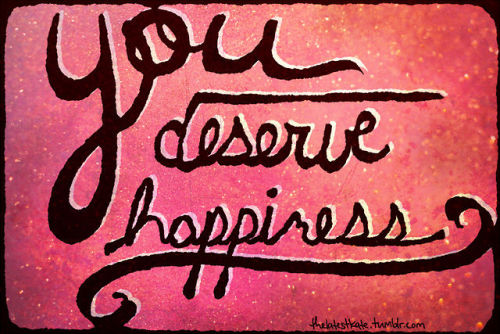 you
deserve
happiness
thelatestkate.tumblr.com